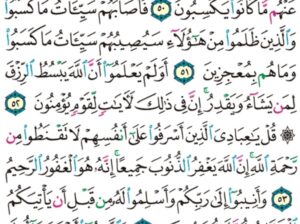 عَنْهُم مَّا كَانُوا۟ يَكْسِبُونَ ٥٠ فَأَصَابَهُمْ سَيِّـَٔاتُ مَا كَسَبُوا۟
وَٱلَّذِينَ ظَلَمُوا۟ مِنْ هَـٰٓؤُلَآءِ سَيُصِيبُهُمْ سَيِّـَٔاتُ مَا كَسَبُوا۟
وَمَا هُم بِمُعْجِزِينَ ٥١ أَوَلَمْ يَعْلَمُوٓا۟ أَنَّ ٱللَّهَ يَبْسُطُ ٱلرِّزْقَ
لِمَن يَشَآءُ وَيَقْدِرُ إِنَّ فِى ذَٰلِكَ لَـَٔايَـٰتٍ لِّقَوْمٍ يُؤْمِنُونَ ٥٢
۞ قُلْ يَـٰعِبَادِىَ ٱلَّذِينَ أَسْرَفُوا۟ عَلَىٰٓ أَنفُسِهِمْ لَا تَقْنَطُوا۟ مِن
رَّحْمَةِ ٱللَّهِ إِنَّ ٱللَّهَ يَغْفِرُ ٱلذُّنُوبَ جَمِيعًا إِنَّهُۥ هُوَ ٱلْغَفُورُ ٱلرَّحِيمُ
٥٣ وَأَنِيبُوٓا۟ إِلَىٰ رَبِّكُمْ وَأَسْلِمُوا۟ لَهُۥ مِن قَبْلِ أَن يَأْتِيَكُمُ